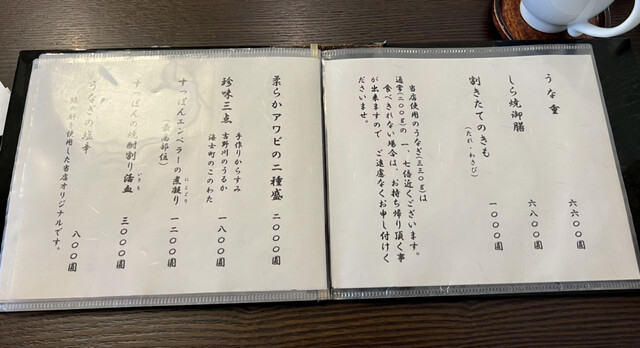 うな重 六六〇〇圓
しら焼御膳 六八〇〇圓
割きたてのきも 一〇〇〇圓
(たれ・わさび)
当店使用のうなぎ(三三〇g)は
通常(二〇〇g)の一、七倍近くございます。
食べきれない場合は、お持ち帰り頂く事
が出来ますので、ご遠慮なくお申し付けく
ださいませ。
柔らかアワビの二種盛 二〇〇〇圓
珍味三点 一八〇〇圓
手作りからすみ
吉野川のうるか
海士町のこのわた
すっぽんエンペラーの煮凝り 一二〇〇圓
にこごり
すっぽんの焼酎割り活血 三〇〇〇圓
いきち
うなぎの塩辛 八〇〇圓
使用した当店オリジナルです。